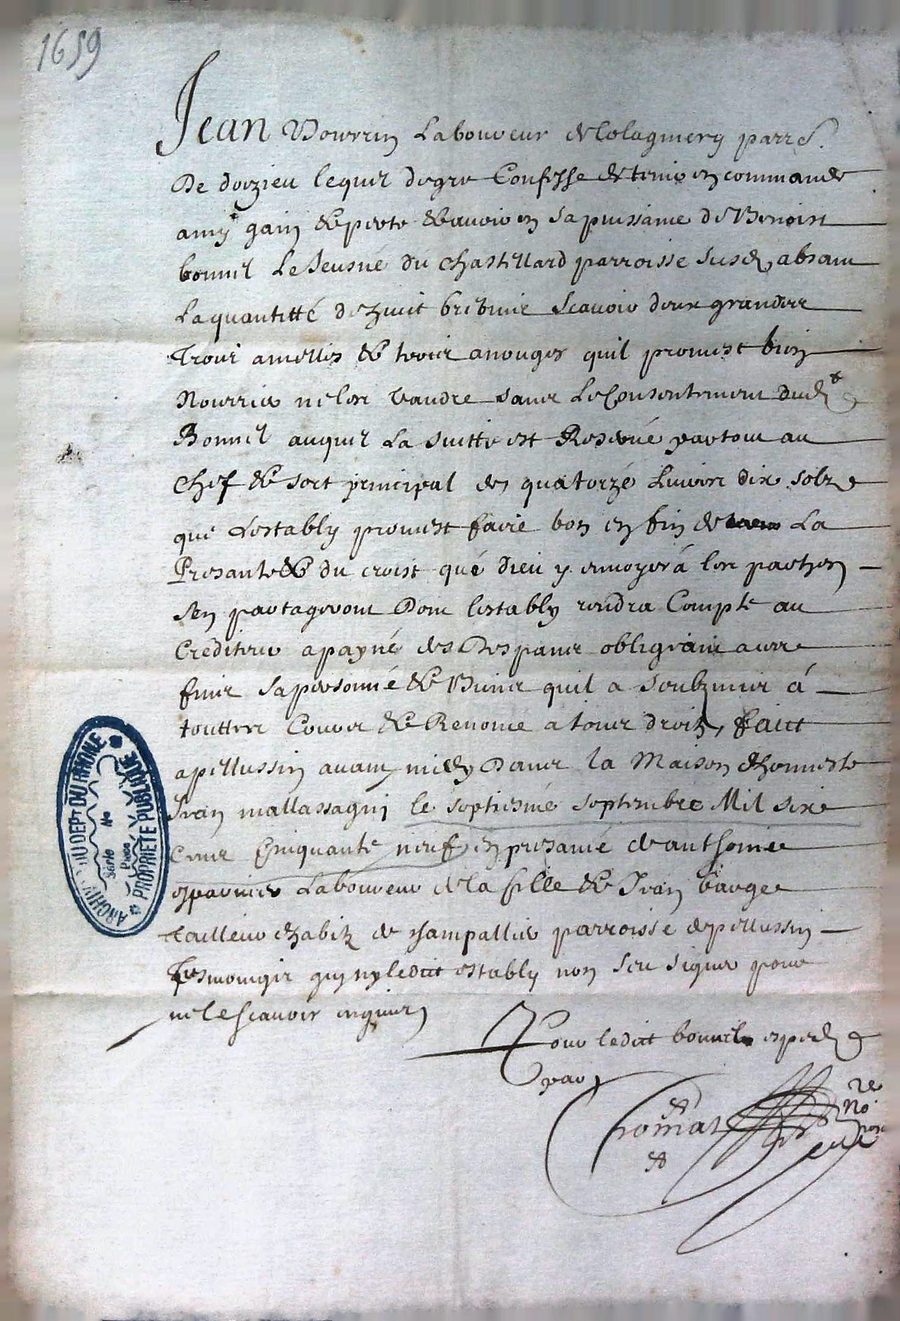 1659
Jean Bourrin Laboureur de Colagniery parre.
De doizieu lequel de gre Confesse et tenir en commande
a my gain et perte et avoir en sa puissance de Benoist
bonnel Le Jeusne du Chastellard parroisse susd absant
La quantitté de huict brebis Scavoir deux grandes
Trois amelles et trois anouges quil promest bien
Nourrir ne les vandre sans Le Consentement dud
Bonnel auquel La suitte est Reservé partout au
Chef et sort principal de quatorze Livres dix solz
que Lestably promest faire bon en fin de La
Presante et du croist qué Dieu y envoyerá les parties
sen partageront Dont lestably rendra Compte au
Crediteur a payne des Despans obligeant a ces
fins sa personne et Biens quil a soubzmis á
touttes Cours et Renoncé a tous droitz, faict
a pellussin avant midy Dans la Maison dhonneste
Jean mallassagni le septiesme septembre Mil six
Cens Cinquante neuf en presance de anthoine
Laboureur de la fille et Jean
tailleur habit de parroisse de pellussin
Tesmoings qui ny ledict estably nont sceu signer pour
ne le scavoir enquis
Pour ledict bonnel exped
par
Chomat
ARCHIVES DU DEPT DU RHONE
PROPRIÉTÉ PUBLIQUE
Série
No
Pièce